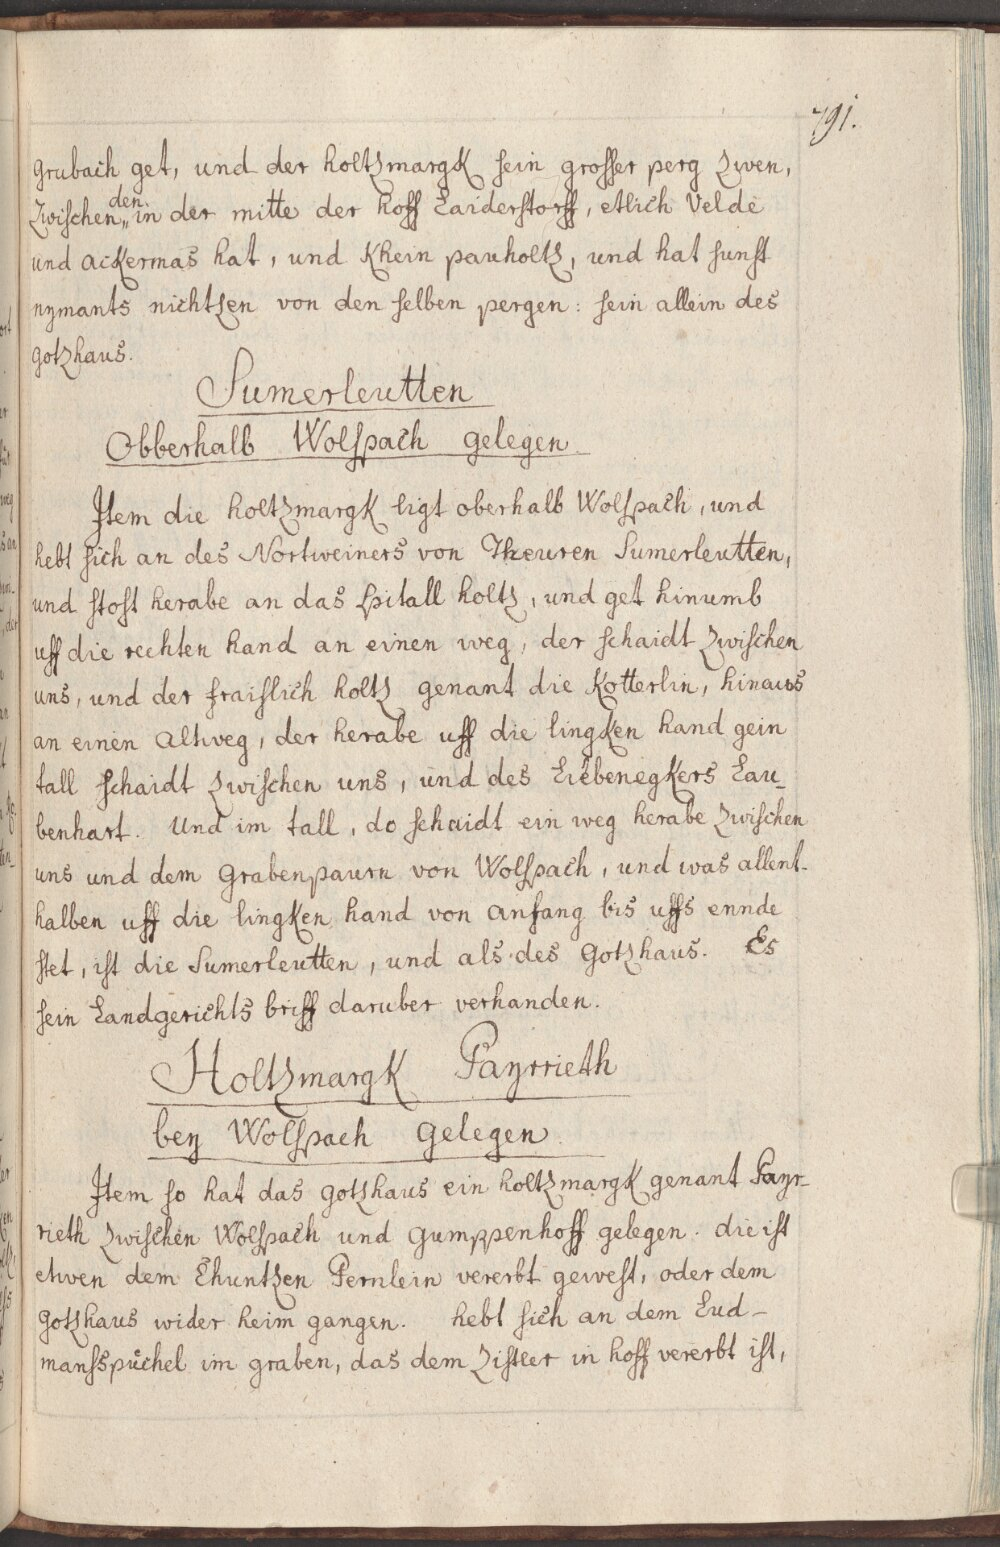 791.
grubach get, und der holtzmargk sein grosser perg zwen,
zwischen den in der mitte der hoff Laiderstorff, etlich velde
und ackermas hat, und khein pauholtz, und hat sunst
nymants nichtzen von den selben pergen: sein allein des
gotzhaus.
Sumerleutten
Obberhalb Wolspach gelegen
Item die holtzmargk ligt oberhalb Wolspach, und
hebt sich an des Nortweiners von Theuren Sumerleutten,
und stost herabe an das spitall holtz, und get hinumb
uff die rechten hand an einen weg, der schaidt zwischen
uns, und der fraislich holtz genant die Kotterlin, hinaus
an einen altweg, der herabe uff die lingken hand gein
tall schaidt zwischen uns, und des Liebenegkers Lau-
benhart. Und im tall, do schaidt ein weg herabe zwischen
uns und dem grabenpaurn von Wolspach, und was allent-
halben uff die lingken hand von anfang bis uffs ennde
stet, ist die Sumerleutten, und als des Gotzhaus. Es
sein Landgerichts briff daruber verhanden.
Holtzmargk Payrrieth
bey Wolspach gelegen
Item so hat das gotzhaus ein holtzmargk genant Payr-
rieth zwischen Wolspach und gumppenhoff gelegen. die ist
etwen dem Chuntzen Pernlein vererbt gewest, oder dem
Gotzhaus wider heim gangen. hebt sich an dem Lud-
manspuchel im graben, das dem Zistler in hoff vererbt ist,